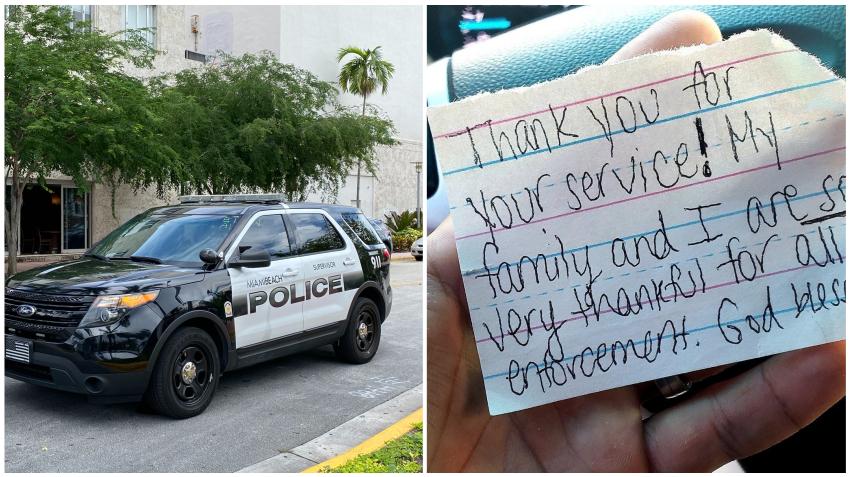 Ford
MIAMI BEACH
SUPERVISOR
POLICE
911
Thank you for
your service! My
family and I are so
very thankful for all
enforcement. God bless